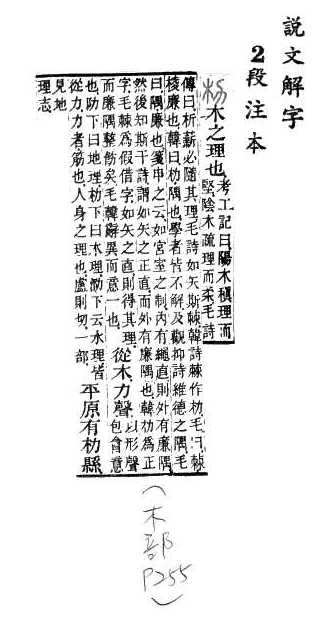 說文解字
2段注本
朸 木之理也。考工記曰陽木稹理而
堅陰木疏理而柔毛詩
傳曰析薪必隨其理毛詩如矢斯棘韓詩棘作朸毛曰棘
棱廉也韓曰朸隅也學者皆不解及觀抑詩維德之隅毛
曰隅廉也箋申之云如宮室之制內有繩直則外有廉隅
然後知斯干詩謂如矢之正直而外有廉隅也韓朸爲正
字毛棘爲假借字如矢之直則得其理
而廉隅整飭矣毛韓辭異而意一也。從木力聲以形聲包會意
也阞下曰地理朸下曰木理泐下云水理皆
從力力者筋也人身之理也盧則切一部。平原有朸縣
見地
理志
(木部
P255)